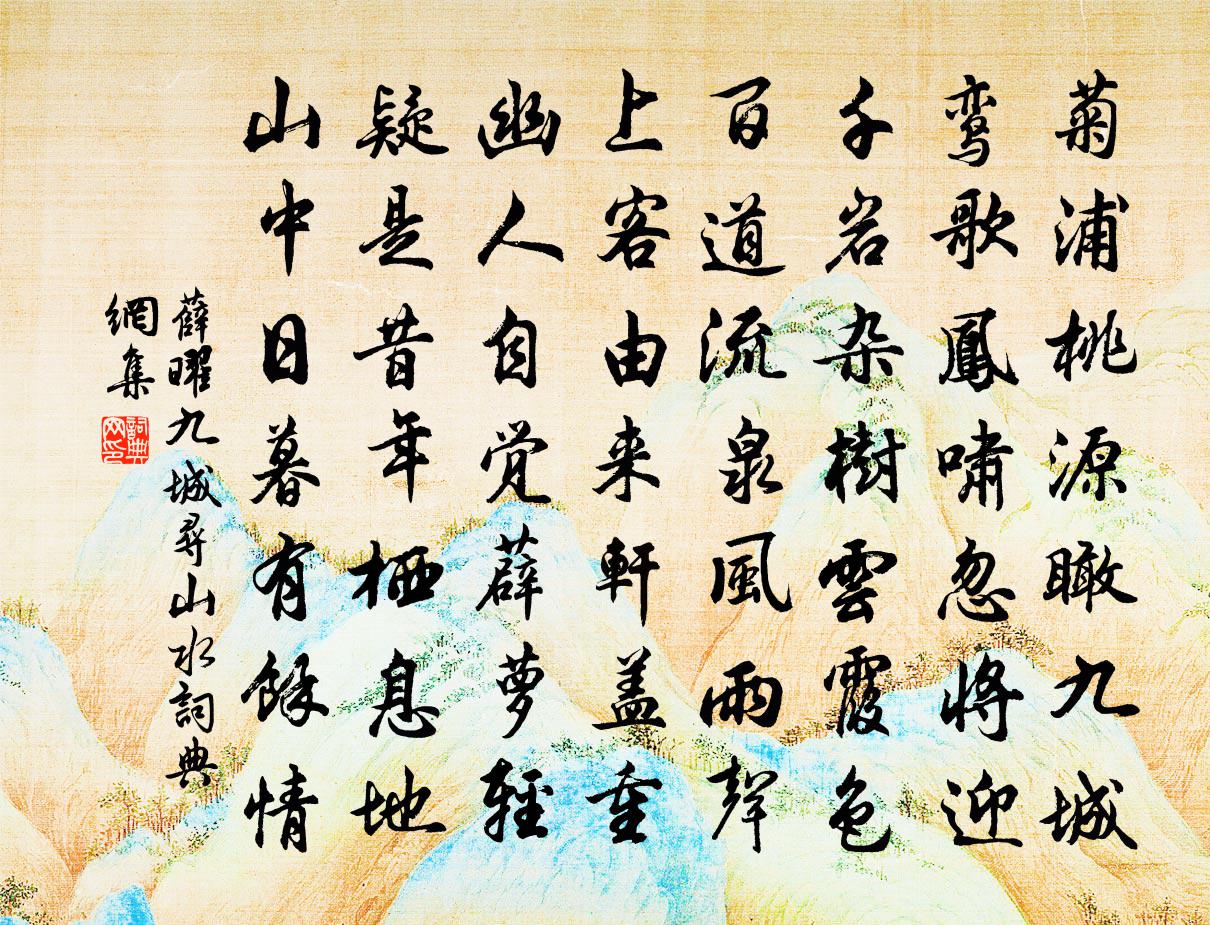 菊浦桃源瞰九城
鸾歌鳳嘯忽將迎
千岩杂樹雲霞色
百道流泉風雨聲
上客由来軒盖重
幽人自觉薜萝輕
疑是昔年栖息地
山中日暮有餘情
薛曜九城尋山水詞典
網集
詞典
网印